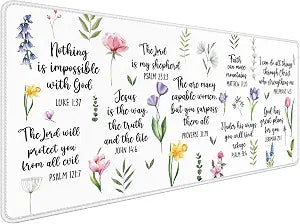 Nothing
is impossible
with God
LUKE 1:37
The Lord
is my shepherd
PSALM 23:1
Faith
can move
mountains
I can do all things
through Christ
who strengthens
me
Jesus
is the way,
the truth
and the life
JOHN 14:6
The are many
capable women,
but you surpass
them all
PROVERBS 31:29
The Lord will
protect you
from all evil
PSALM 121:7
Under his wings
you will find
refuge
PSALM 91:4
God has
great plans
for you